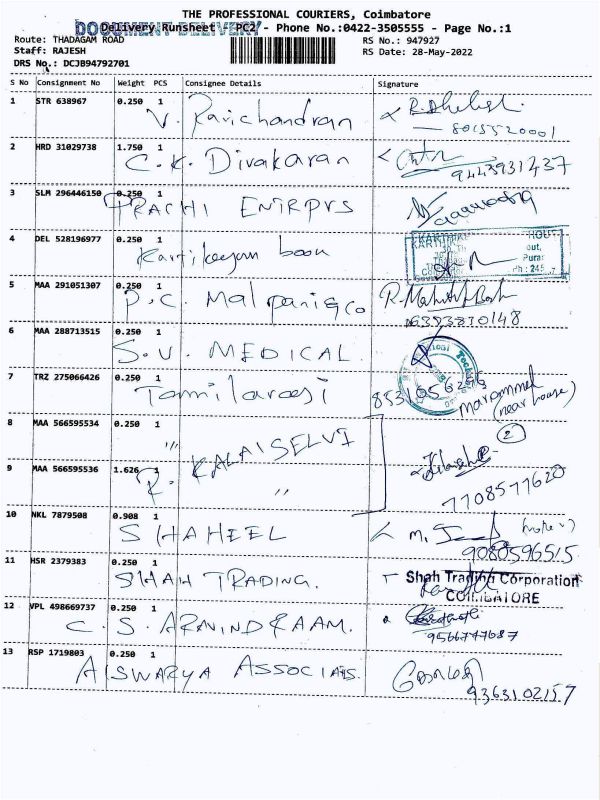 THE PROFESSIONAL COURIERS, Coimbatore
DOCUMENT DELIVERY
Delivery Runsheet - PC2 - Phone No.:0422-3505555 - Page No.:1
Route: THADAGAM ROAD RS No.: 947927
Staff: RAJESH RS Date: 28-May-2022
DRS No.: DCJB94792701
S No Consignment No Weight PCS Consignee Details Signature
1 STR 638967 0.250 1
V. Ravichandran
8015520001
2 HRD 31029738 1.750 1
C.K. Divakaran
9443931437
3 SLM 296446150 0.250 1
PRACHI ENTRPVS
4 DEL 528196977 0.250 1
Kartikeyan book
out,
Purar
5 MAA 291051307 0.250 1
P.C. Malpani & co
6393810148
6 MAA 288713515 0.250 1
S.V. MEDICAL
7 TRZ 275066426 0.250 1
Tamilarasi
(near house)
8 MAA 566595534 0.250 1
〃
R. KALAISELVI
2
9 MAA 566595536 1.626 1
〃
7708577620
10 NKL 7879508 0.908 1
SHAHEEL
9080596515
11 HSR 2379383 0.250 1
SHAH TRADING.
Shah Trading Corporation
COIMBATORE
12 VPL 498669737 0.250 1
C.S. ARAVIND RAAM.
9566747687
13 RSP 1719803 0.250 1
AISWARYA ASSOCIATS.
9363102157